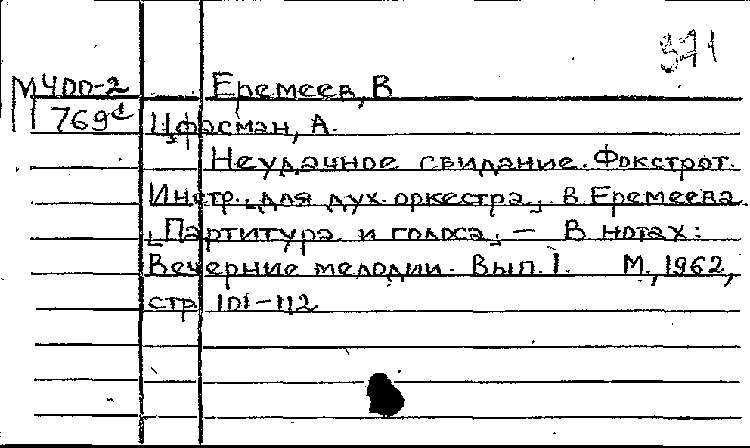 371
М400-2 Еремеев, В
769d Цфасман, А.
Неудачное свидание. Фокстрот.
Инстр. [для дух. оркестра] В. Еремеева.
[Партитура и голоса]. — В нотах:
Вечерние мелодии. Вып. I. М., 1962,
стр 101-112